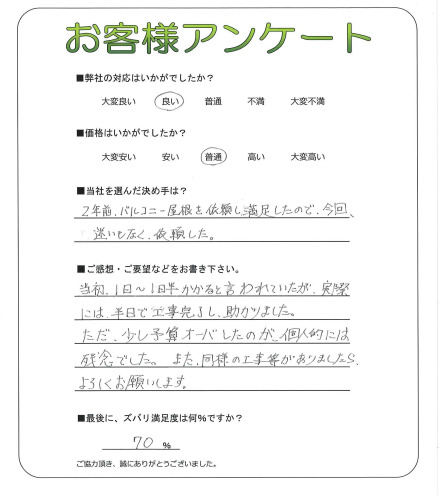 お客様アンケート
■弊社の対応はいかがでしたか?
大変良い 良い 普通 不満 大変不満
■価格はいかがでしたか?
大変安い 安い 普通 高い 大変高い
■当社を選んだ決め手は?
2年前、バルコニー屋根を依頼し満足したので、今回、
迷いもなく、依頼した。
■ご感想・ご要望などをお書き下さい。
当初、1日〜1日半かかると言われていたが、実際
には、半日で工事完了し、助かりました。
ただ、少し予算オーバしたのが、個人的には
残念でした。 また、同様の工事等がありましたら、
よろしくお願いします。
■最後に、ズバリ満足度は何%ですか?
70 %
ご協力頂き、誠にありがとうございました。